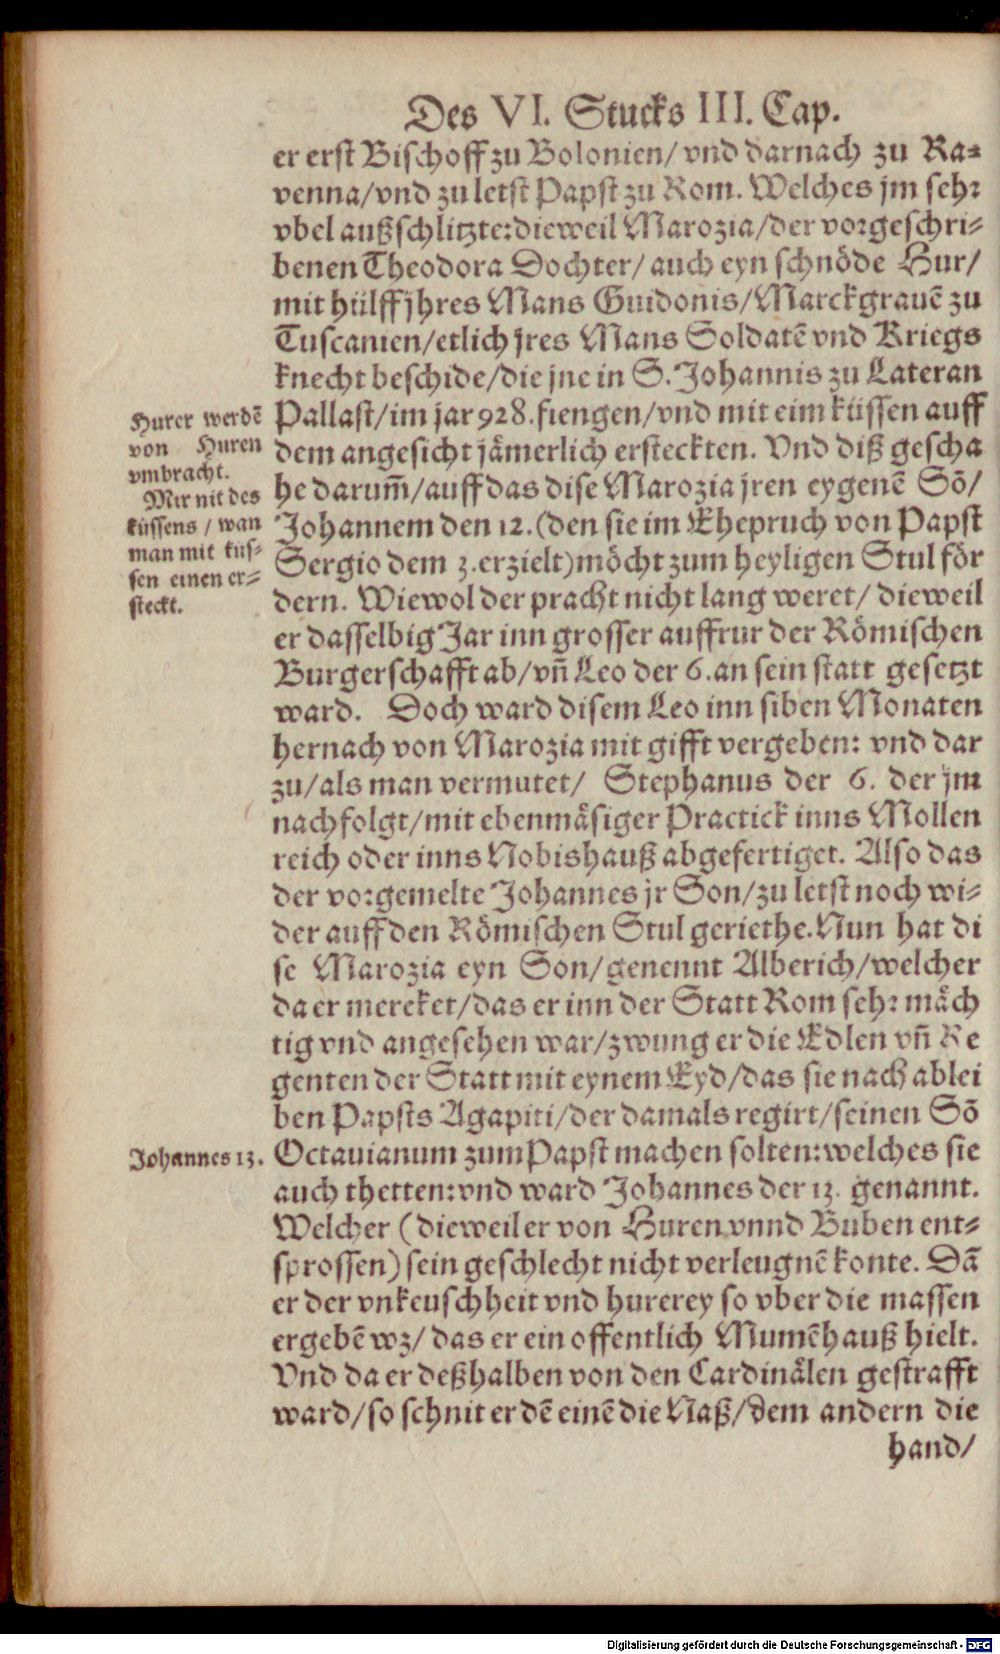 Des VI. Stucks III. Cap.
er erst Bischoff zu Bolonien/ vnd darnach zu Ra⸗
venna/vnd zu letst Papst zu Rom. Welches jm sehr
vbel außschlitzte: dieweil Marozia/der vorgeschri⸗
benen Theodora Dochter/ auch eyn schnöde Hur/
mit hülff jhres Mans Guidonis/Marckgrauẽ zu
Tuscanien/etlich jres Mans Soldatẽ vnd Kriegs
knecht beschide/die jne in S. Johannis zu Lateran
Pallast/im jar 928. fiengen/vnd mit eim küssen auff
dem angesicht jämerlich ersteckten. Vnd diß gescha
he darum̃/auff das dise Marozia jren eygenẽ Sõ/
Johannem den 12. (den sie im Ehepruch von Papst
Sergio dem 3. erzielt) möcht zum heyligen Stul för
dern. Wiewol der pracht nicht lang weret/ dieweil
er dasselbig Jar inn grosser auffrur der Römischen
Burgerschafft ab/vñ Leo der 6. an sein statt gesetzt
ward. Doch ward disem Leo inn siben Monaten
hernach von Marozia mit gifft vergeben: vnd dar
zu/als man vermutet/ Stephanus der 6. der jm
nachfolgt/mit ebenmäsiger Practick inns Mollen
reich oder inns Nobishauß abgefertiget. Also das
der vorgemelte Johannes jr Son/zu letst noch wi⸗
der auff den Römischen Stul geriethe. Nun hat di
se Marozia eyn Son/genennt Alberich/welcher
da er mercket/das er inn der Statt Rom sehr mäch
tig vnd angesehen war/zwung er die Edlen vñ Re
genten der Statt mit eynem Eyd/das sie nach ablei
ben Papsts Agapiti/der damals regirt/seinen Sõ
Octauianum zum Papst machen solten: welches sie
auch thetten: vnd ward Johannes der 13. genannt.
Welcher (dieweil er von Huren vnnd Buben ent⸗
sprossen) sein geschlecht nicht verleugnẽ konte. Dã
er der vnkeuschheit vnd hurerey so vber die massen
ergebẽ wz/ das er ein offentlich Mumẽhauß hielt.
Vnd da er deßhalben von den Cardinälen gestrafft
ward/so schnit er dẽ einẽ die Naß/dem andern die
hand/
Hurer werdẽ
von Huren
vmbracht.
Mir nit des
küssens / wan
man mit küs⸗
sen einen er⸗
steckt.
Johannes 13.
Digitalisierung gefördert durch die Deutsche Forschungsgemeinschaft - DFG